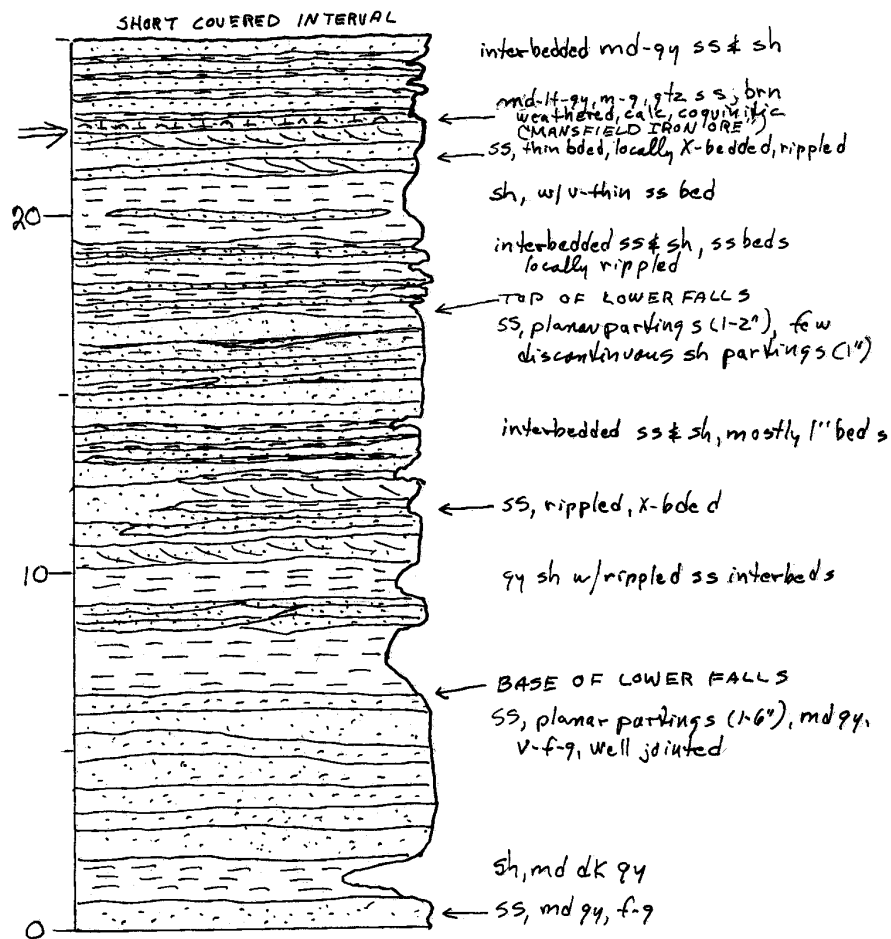 SHORT COVERED INTERVAL
interbedded md-gy ss & sh
md-lt-gy, m-g, qtz ss, brn
weathered, calc, coquinitic
("MANSFIELD IRON ORE")
ss, thin bded, locally X-bedded, rippled
sh, w/ v-thin ss bed
20
interbedded ss & sh, ss beds
locally rippled
TOP OF LOWER FALLS
ss, planar partings (1-2"), few
discontinuous sh partings (1")
interbedded ss & sh, mostly 1" beds
ss, rippled, X-bded
10
gy sh w/rippled ss interbeds
BASE OF LOWER FALLS
ss, planar partings (1-6"), md gy,
v-f-g, well jointed
sh, md dk gy
ss, md gy, f-g
0